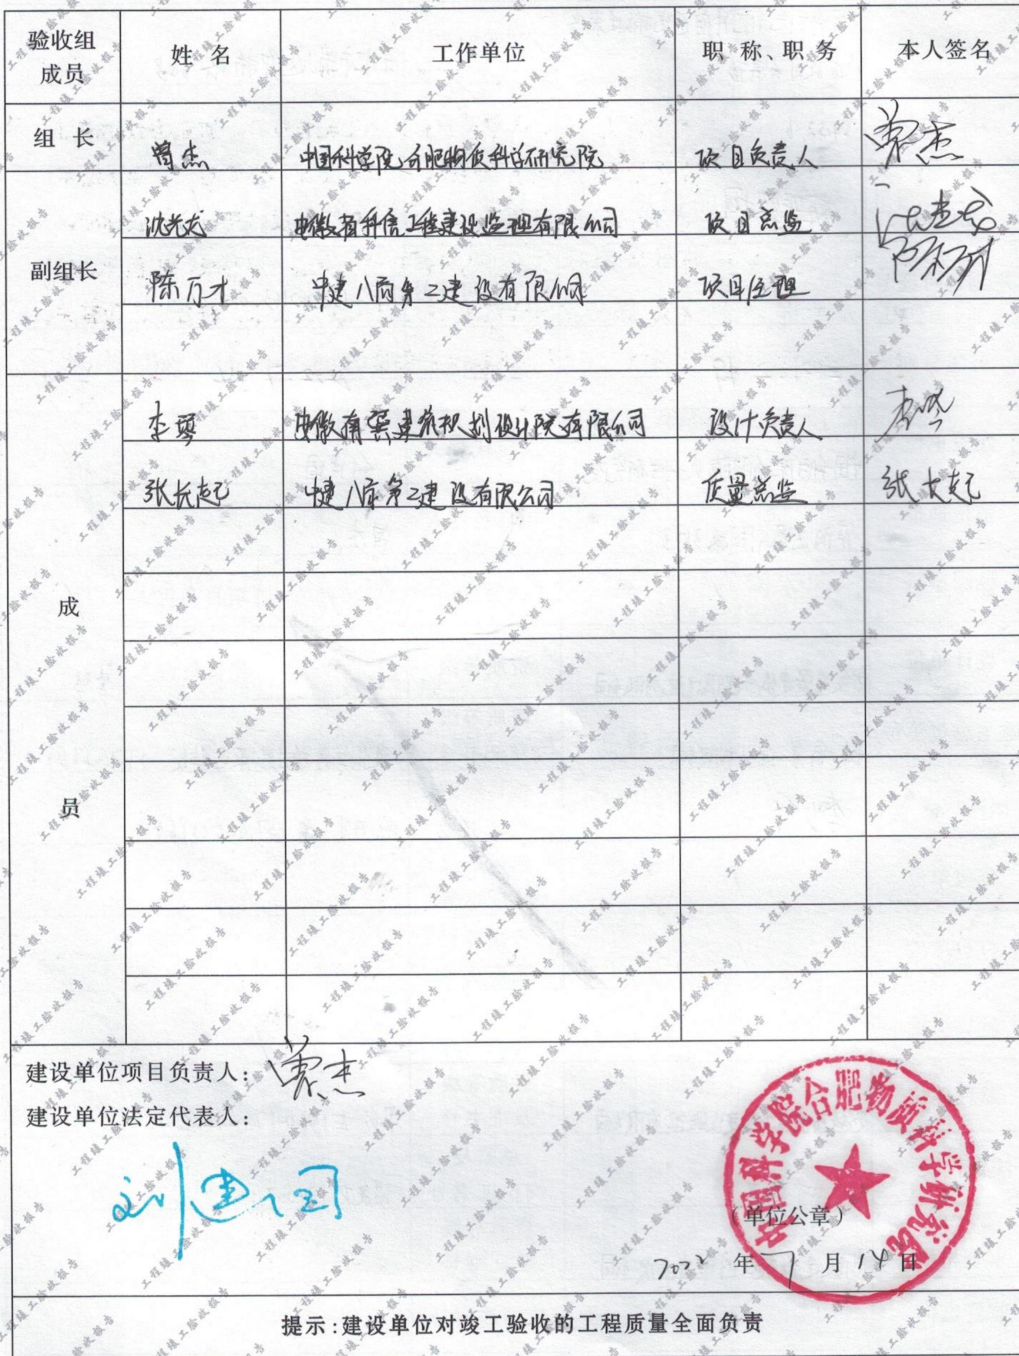 验收组成员 姓 名 工作单位 职 称、职 务 本人签名
组 长 曾杰 中国科学院合肥物质科学研究院 项目负责人 曾杰
沈光龙 安徽省科信工程建设监理有限公司 项目总监
副组长 陈万才 中建八局第二建设有限公司 项目经理
李 设计负责人
张长起 中建八局第二建设有限公司 质量总监 张长起
成
员
建设单位项目负责人： 曾杰
建设单位法定代表人：
刘建国
中国科学院合肥物质科学研究院
（单位公章）
2022 年 7 月 14 日
提示：建设单位对竣工验收的工程质量全面负责
工程竣工验收报告